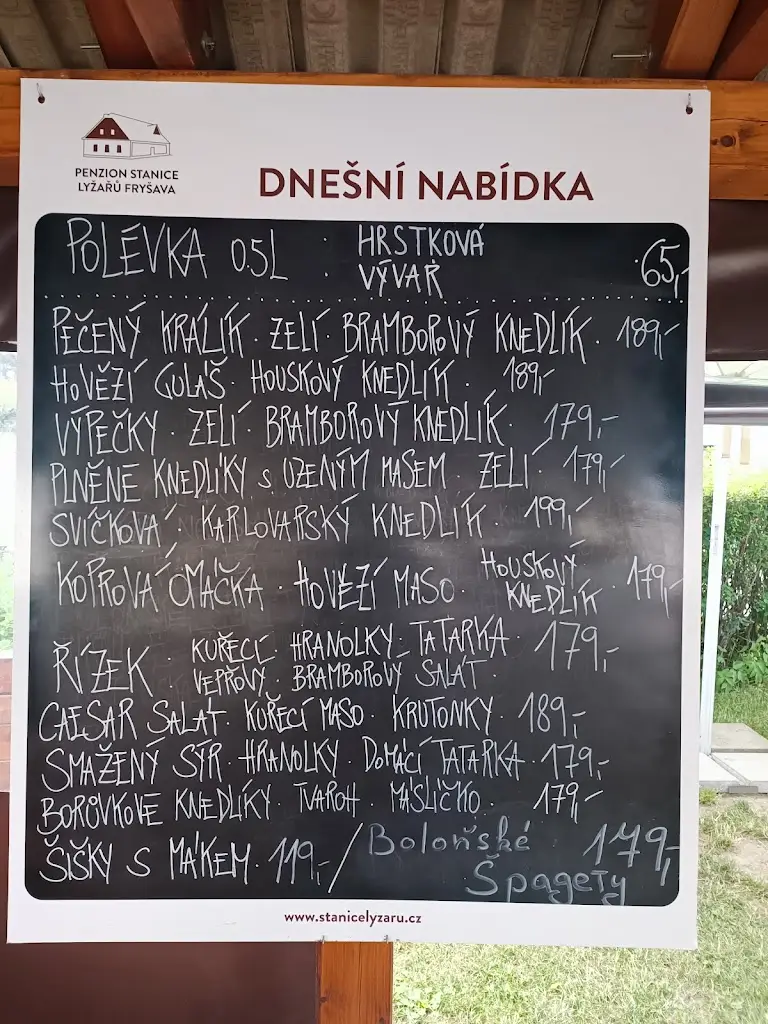 PENZION STANICE
LYŽAŘŮ FRYŠAVA
DNEŠNÍ NABÍDKA
POLÉVKA 0.5L : HRSTKOVÁ
VÝVAR 65,-
PEČENÝ KRÁLÍK · ZELÍ · BRAMBOROVÝ KNEDLÍK · 189,-
HOVĚZÍ GULÁŠ · HOUSKOVÝ KNEDLÍK · 189,-
VÝPEČKY · ZELÍ · BRAMBOROVÝ KNEDLÍK · 179,-
PLNĚNÉ KNEDLÍKY S UZENÝM MASEM · ZELÍ · 179,-
SVÍČKOVÁ · KARLOVARSKÝ KNEDLÍK · 199,-
KOPROVÁ OMÁČKA · HOVĚZÍ MASO · HOUSKOVÝ
KNEDLÍK · 179,-
ŘÍZEK · KUŘECÍ · HRANOLKY - TATARKA 179,-
VEPŘOVÝ · BRAMBOROVÝ SALÁT ·
CAESAR SALÁT · KUŘECÍ MASO · KRUTONKY · 189,-
SMAŽENÝ SÝR · HRANOLKY · DOMÁCÍ TATARKA · 179,-
BORŮVKOVÉ KNEDLÍKY · TVAROH · MÁSLÍČKO · 179,-
ŠIŠKY S MÁKEM · 119,- / Boloňské
Špagety 179,-
www.stanicelyzaru.cz